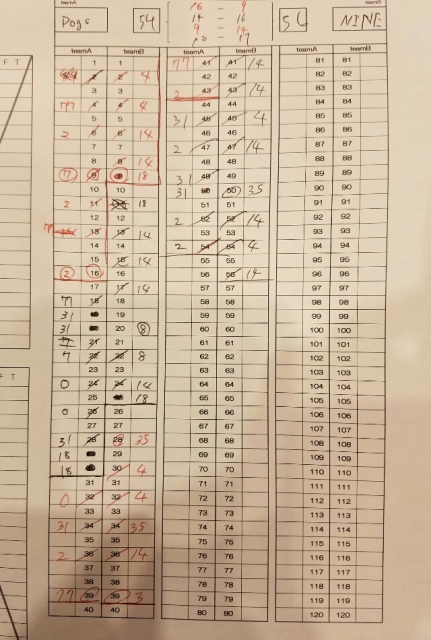 16 - 9
Dogs 54 14 - 16 54 NINE
9 - 14
- 17
F T
teamA teamB teamA teamB teamA teamB
1 1 77 41 41 14 81 81
2 2 4 42 42 82 82
3 3 2 43 43 14 83 83
77 4 4 4 44 44 84 84
5 5 31 45 45 4 85 85
2 6 6 14 46 46 86 86
7 7 2 47 47 14 87 87
8 8 14 48 48 88 88
77 9 18 31 49 49 89 89
10 10 31 50 50 35 90 90
2 11 18 51 51 91 91
12 12 2 52 52 14 92 92
13 13 14 53 53 93 93
14 14 2 54 54 4 94 94
15 15 14 55 55 95 95
2 16 16 56 56 14 96 96
17 17 14 57 57 97 97
77 18 18 58 58 98 98
31 19 59 59 99 99
31 20 8 60 60 100 100
21 21 61 61 101 101
7 22 22 8 62 62 102 102
23 23 63 63 103 103
0 24 24 14 64 64 104 104
25 18 65 65 105 105
0 26 26 66 66 106 106
27 27 67 67 107 107
31 28 28 35 68 68 108 108
18 29 69 69 109 109
18 30 4 70 70 110 110
31 31 71 71 111 111
0 32 32 4 72 72 112 112
33 33 73 73 113 113
31 34 34 35 74 74 114 114
35 35 75 75 115 115
2 36 36 14 76 76 116 116
37 37 77 77 117 117
38 38 78 78 118 118
77 39 39 3 79 79 119 119
40 40 80 80 120 120
F T